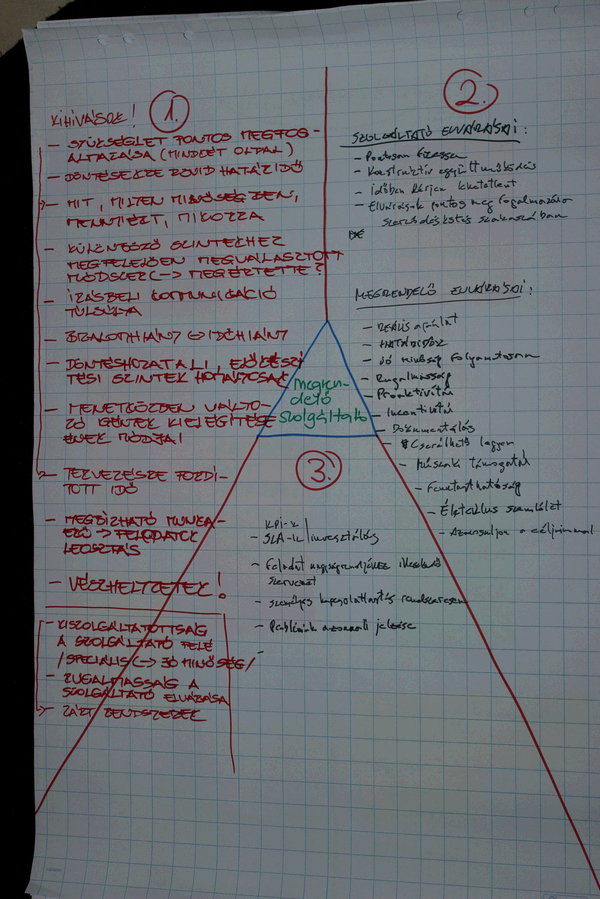 KIHÍVÁSOK!
1.
- SZÜKSÉGLET PONTOS MEGFOG-
ALMAZÁSA (MINDKÉT OLDAL)
- DÖNTÉSEKRE RÖVID HATÁRIDŐ
- MIT, MILYEN MINŐSÉGBEN,
MENNYIÉRT, MIKORRA
- KÜLÖNBÖZŐ SZINTEKHEZ
MEGFELELŐEN MEGVÁLASZTOTT
MÓDSZER (-> MEGÉRTETTE?
- ÍRÁSBELI KOMMUNIKÁCIÓ
TÚLSÚLYA
- BIZALOMHIÁNY <-> IDŐHIÁNY
- DÖNTÉSHOZATALI ELŐKÉSZÍ-
TÉSI SZINTEK HOSSZÚSÁGA
- MENETKÖZBEN VÁLTO-
ZÓ IGÉNYEK KIELÉGÍTÉSÉ-
ÉNEK MÓDJAI
- TERVEZÉSRE FORDÍ-
TOTT IDŐ
- MEGBÍZHATÓ MUNKA-
ERŐ -> FELADATOK
LEOSZTÁS
- VÉSZHELYZETEK!
- KISZOLGÁLTATOTTSÁG
A SZOLGÁLTATÓ FELÉ
/SPECIÁLIS (-> JÓ MINŐSÉG/
- RUGALMASSÁG A
SZOLGÁLTATÓ ELVÁRÁSA
- ZÁRT RENDSZEREK
2.
SZOLGÁLTATÓ ELVÁRÁSAI:
- Pontosan fizessen
- Konstruktív együttműködés
- Időben kérjen
- Elvárások pontos megfogalmazása
szerződéskötés szakaszában
MEGRENDELŐ ELVÁRÁSAI:
- REÁLIS ajánlat
- HATÁRIDŐK
- Jó minőség folyamatosan
- Rugalmasság
- Proaktivitás
- Dokumentálás
- Cserélhető legyen
- Műszaki támogatás
- Fenntarthatóság
- Életciklus szemlélet
- Azonosuljon a céljaimmal
megren-
delő
szolgáltató
3.
- KPI-k
- SLA-k
- Feladat nagyságrendjéhez illeszkedő
szervezet
- személyes kapcsolattartás rendszeresen
- Problémák azonnali jelzése
-